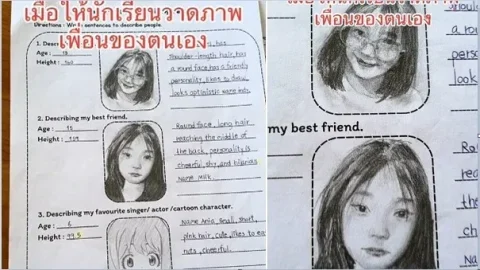 เมื่อให้นักเรียนวาดภาพ
เพื่อนของตนเอง
sentences to describe people.
Age :
Height :
Shoulder-length hair, has
a round face, has a friendly
personality, likes to draw,
looks optimistic
2. Describing my best friend.
Age : 15
Height :
Round face, long hair
reaching the middle of
the back, personality is
cheerful, shy, and hilarious
Name Milk.
3. Describing my favourite singer/ actor /cartoon character.
Age : 6
Height : 99.5
Name Anya, small, short,
pink hair, cute, likes to ea
nuts, cheerful.
เพื่อนของตนเอง
a ro
perso
look
my best friend.
Ro
rea
the
ch
Na